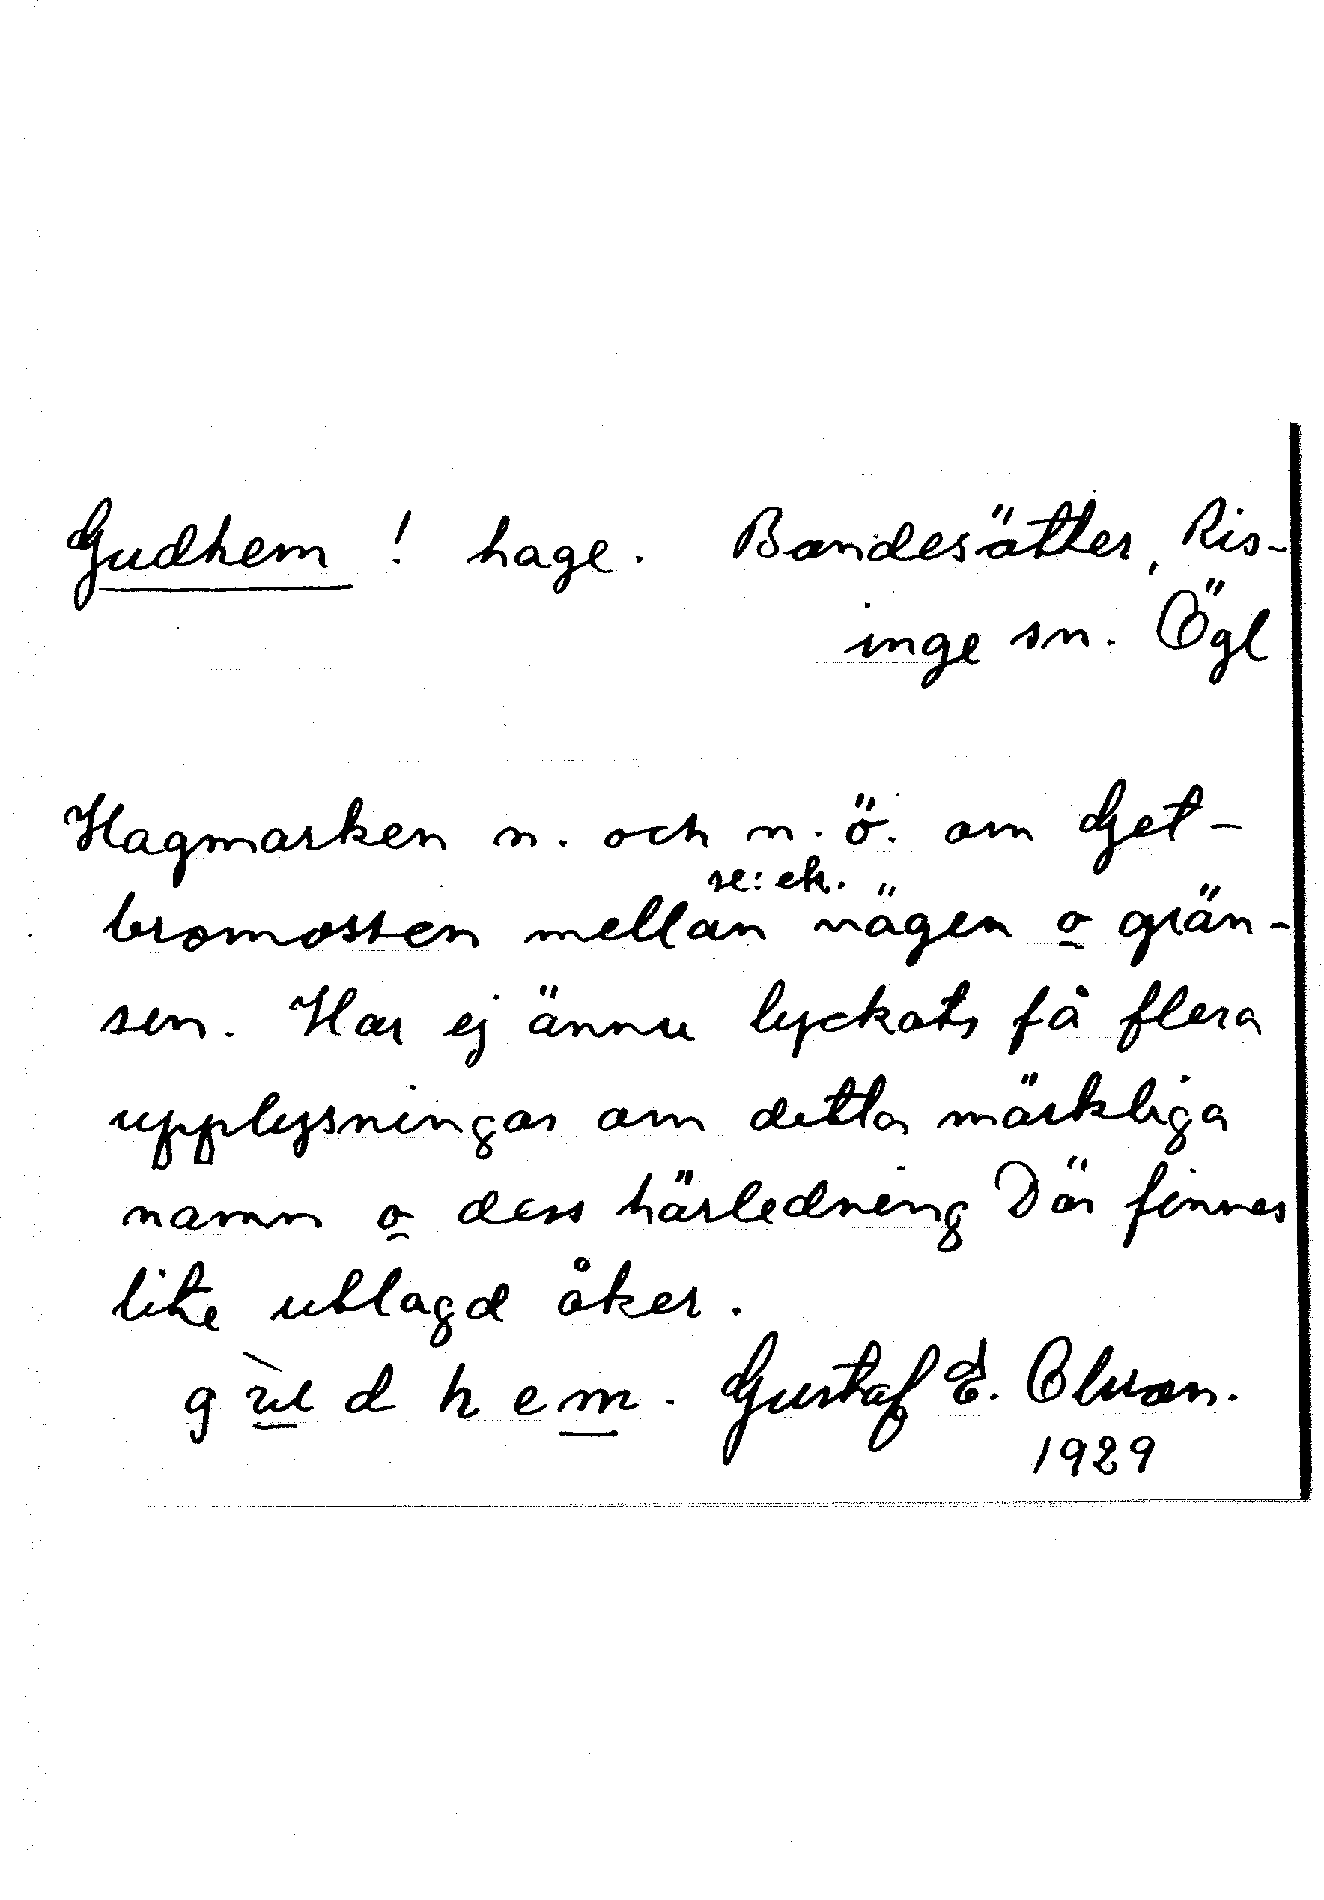 Gudhem ! hage. Bandesätter, Ris-
inge sn. Ögl
Hagmarken n. och n.ö. om Get-
se: ek.
bromossen mellan vägen o grän-
sen. Har ej ännu lyckats få flera
upplysningar om detta märkliga
namn o dess härledning Där finnes
lite utlagd åker.
g u d h e m. Gustaf E. Olsson.
1929